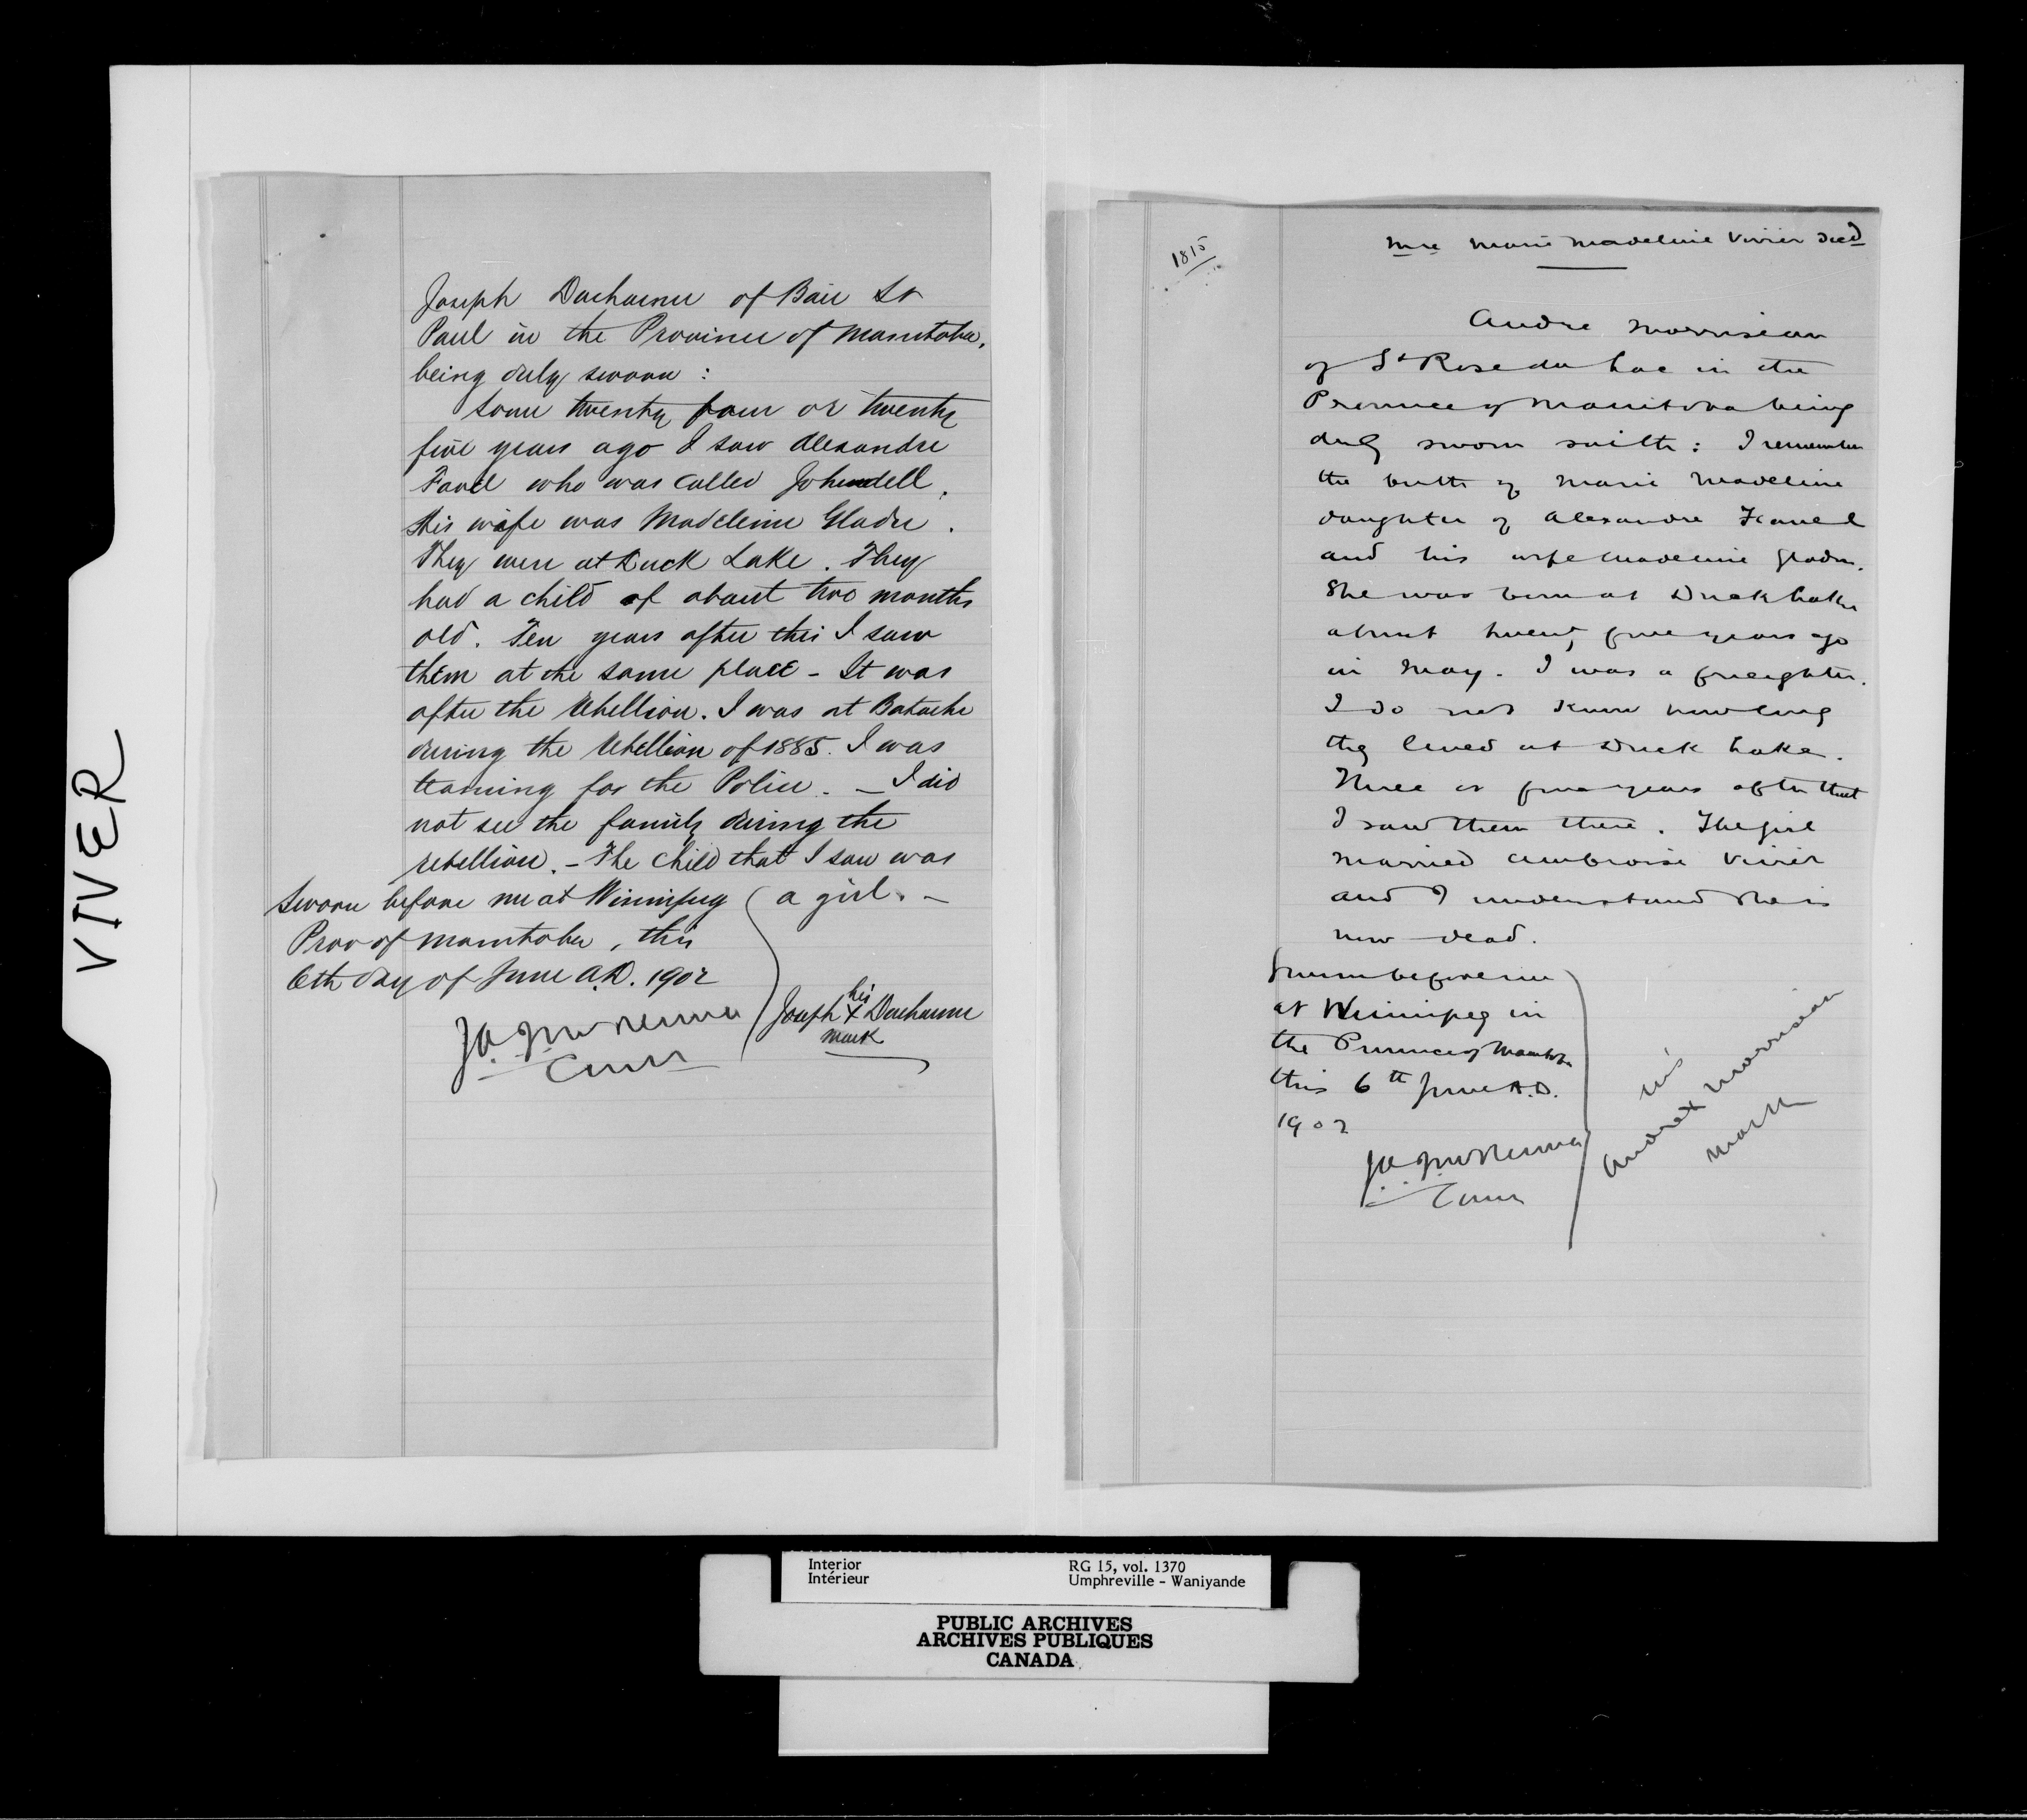 VIVER
Joseph Ducharme of Baie St
Paul in the Province of Manitoba,
being duly sworn :
Some twenty four or twenty
five years ago I saw Alexandre
Favel who was called Johndell.
His wife was Madeleine Gladu.
They were at Duck Lake. They
had a child of about two months
old. Ten years after this I saw
them at the same place - It was
after the Rebellion. I was at Batoche
during the Rebellion of 1885. I was
teaming for the Police. - I did
not see the family during the
rebellion. - The child that I saw was
a girl. -
Sworn before me at Winnipeg
Prov of Manitoba, this
6th day of June A.D. 1902
J.A.J. McKenna
Comr
his
Joseph X Ducharme
mark
1815
Mrs Marie Madeleine Vivier Decd
Andre Morriseau
of St Rose du Lac in the
Province of Manitoba being
duly sworn saith : I remember
the birth of Marie Madeleine
daughter of Alexandre Favel
and his wife Madeleine Gladu.
She was born at Duck Lake
about twenty five years ago
in May. I was a freighter.
I do not know how long
they lived at Duck Lake.
Three or four years after that
I saw them there. The girl
married Ambroise Vivier
and I understand she is
now dead.
Sworn before me
at Winnipeg in
the Province of Manitoba
this 6th June A.D.
1902
J.A.J. McKenna
Comr
his
Andre X Morriseau
mark
Interior RG 15, vol. 1370
Intérieur Umphreville - Waniyande
PUBLIC ARCHIVES
ARCHIVES PUBLIQUES
CANADA